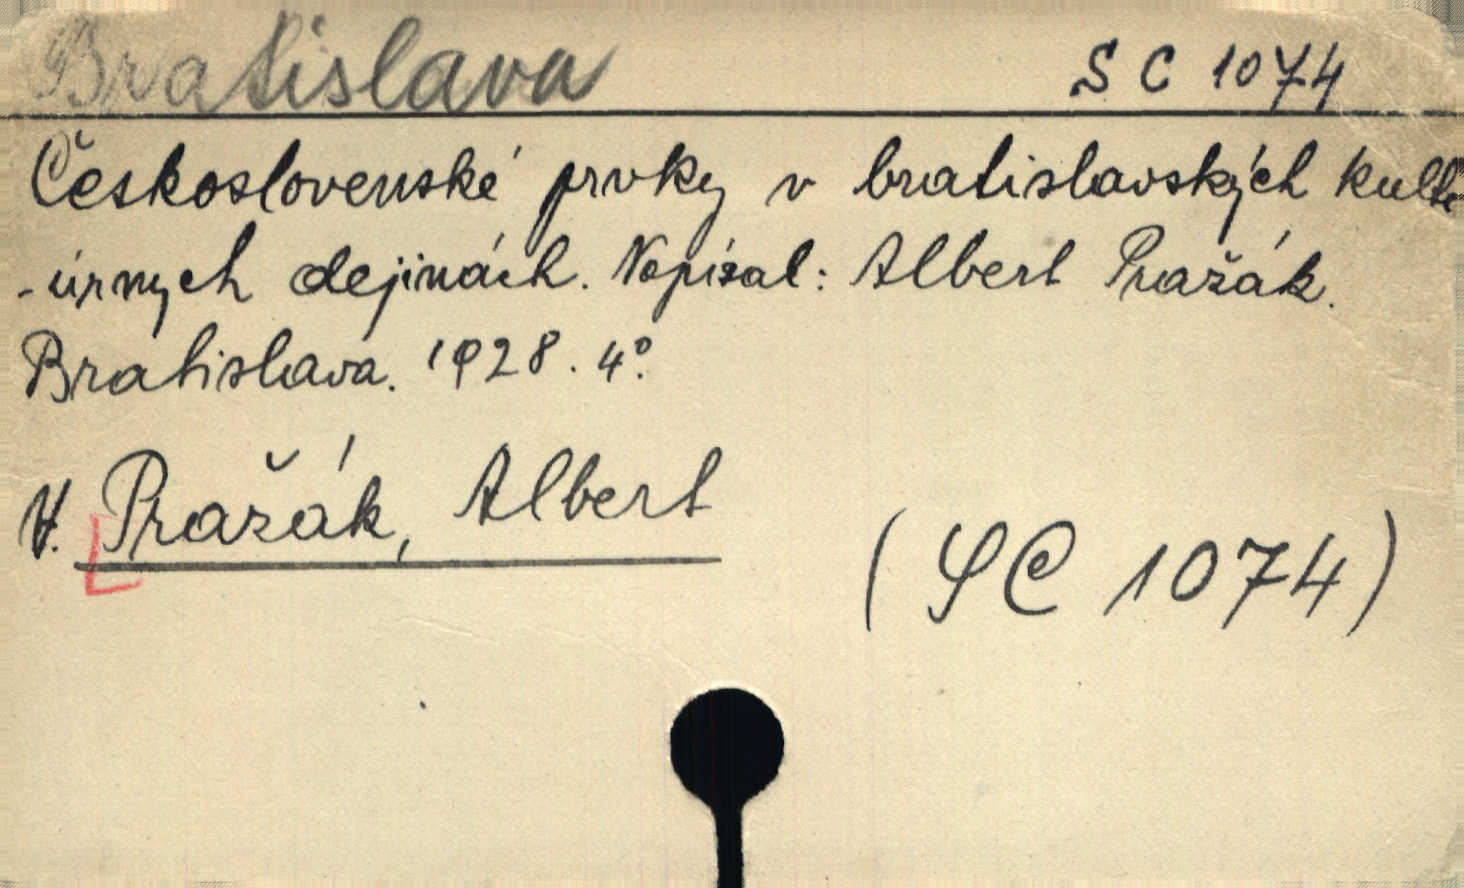 Bratislava SC 1074
Československé prvky v bratislavských kult
-úrnych dejinách. Napísal: Albert Pražák.
Bratislava. 1928. 4°.
V. Pražák, Albert
(SC 1074)